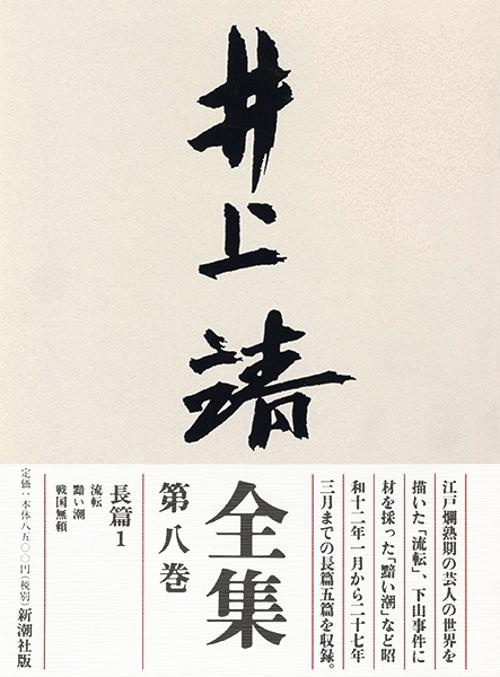 井上靖
江戸爛熟期の芸人の世界を
描いた「流転」、下山事件に
材を採った「黯い潮」など昭
和十二年一月から二十七年
三月までの長篇五篇を収録。
全集
第八巻
長篇1
流転
黯い潮
戦国無頼
定価:本体八五〇〇円(税別)新潮社版